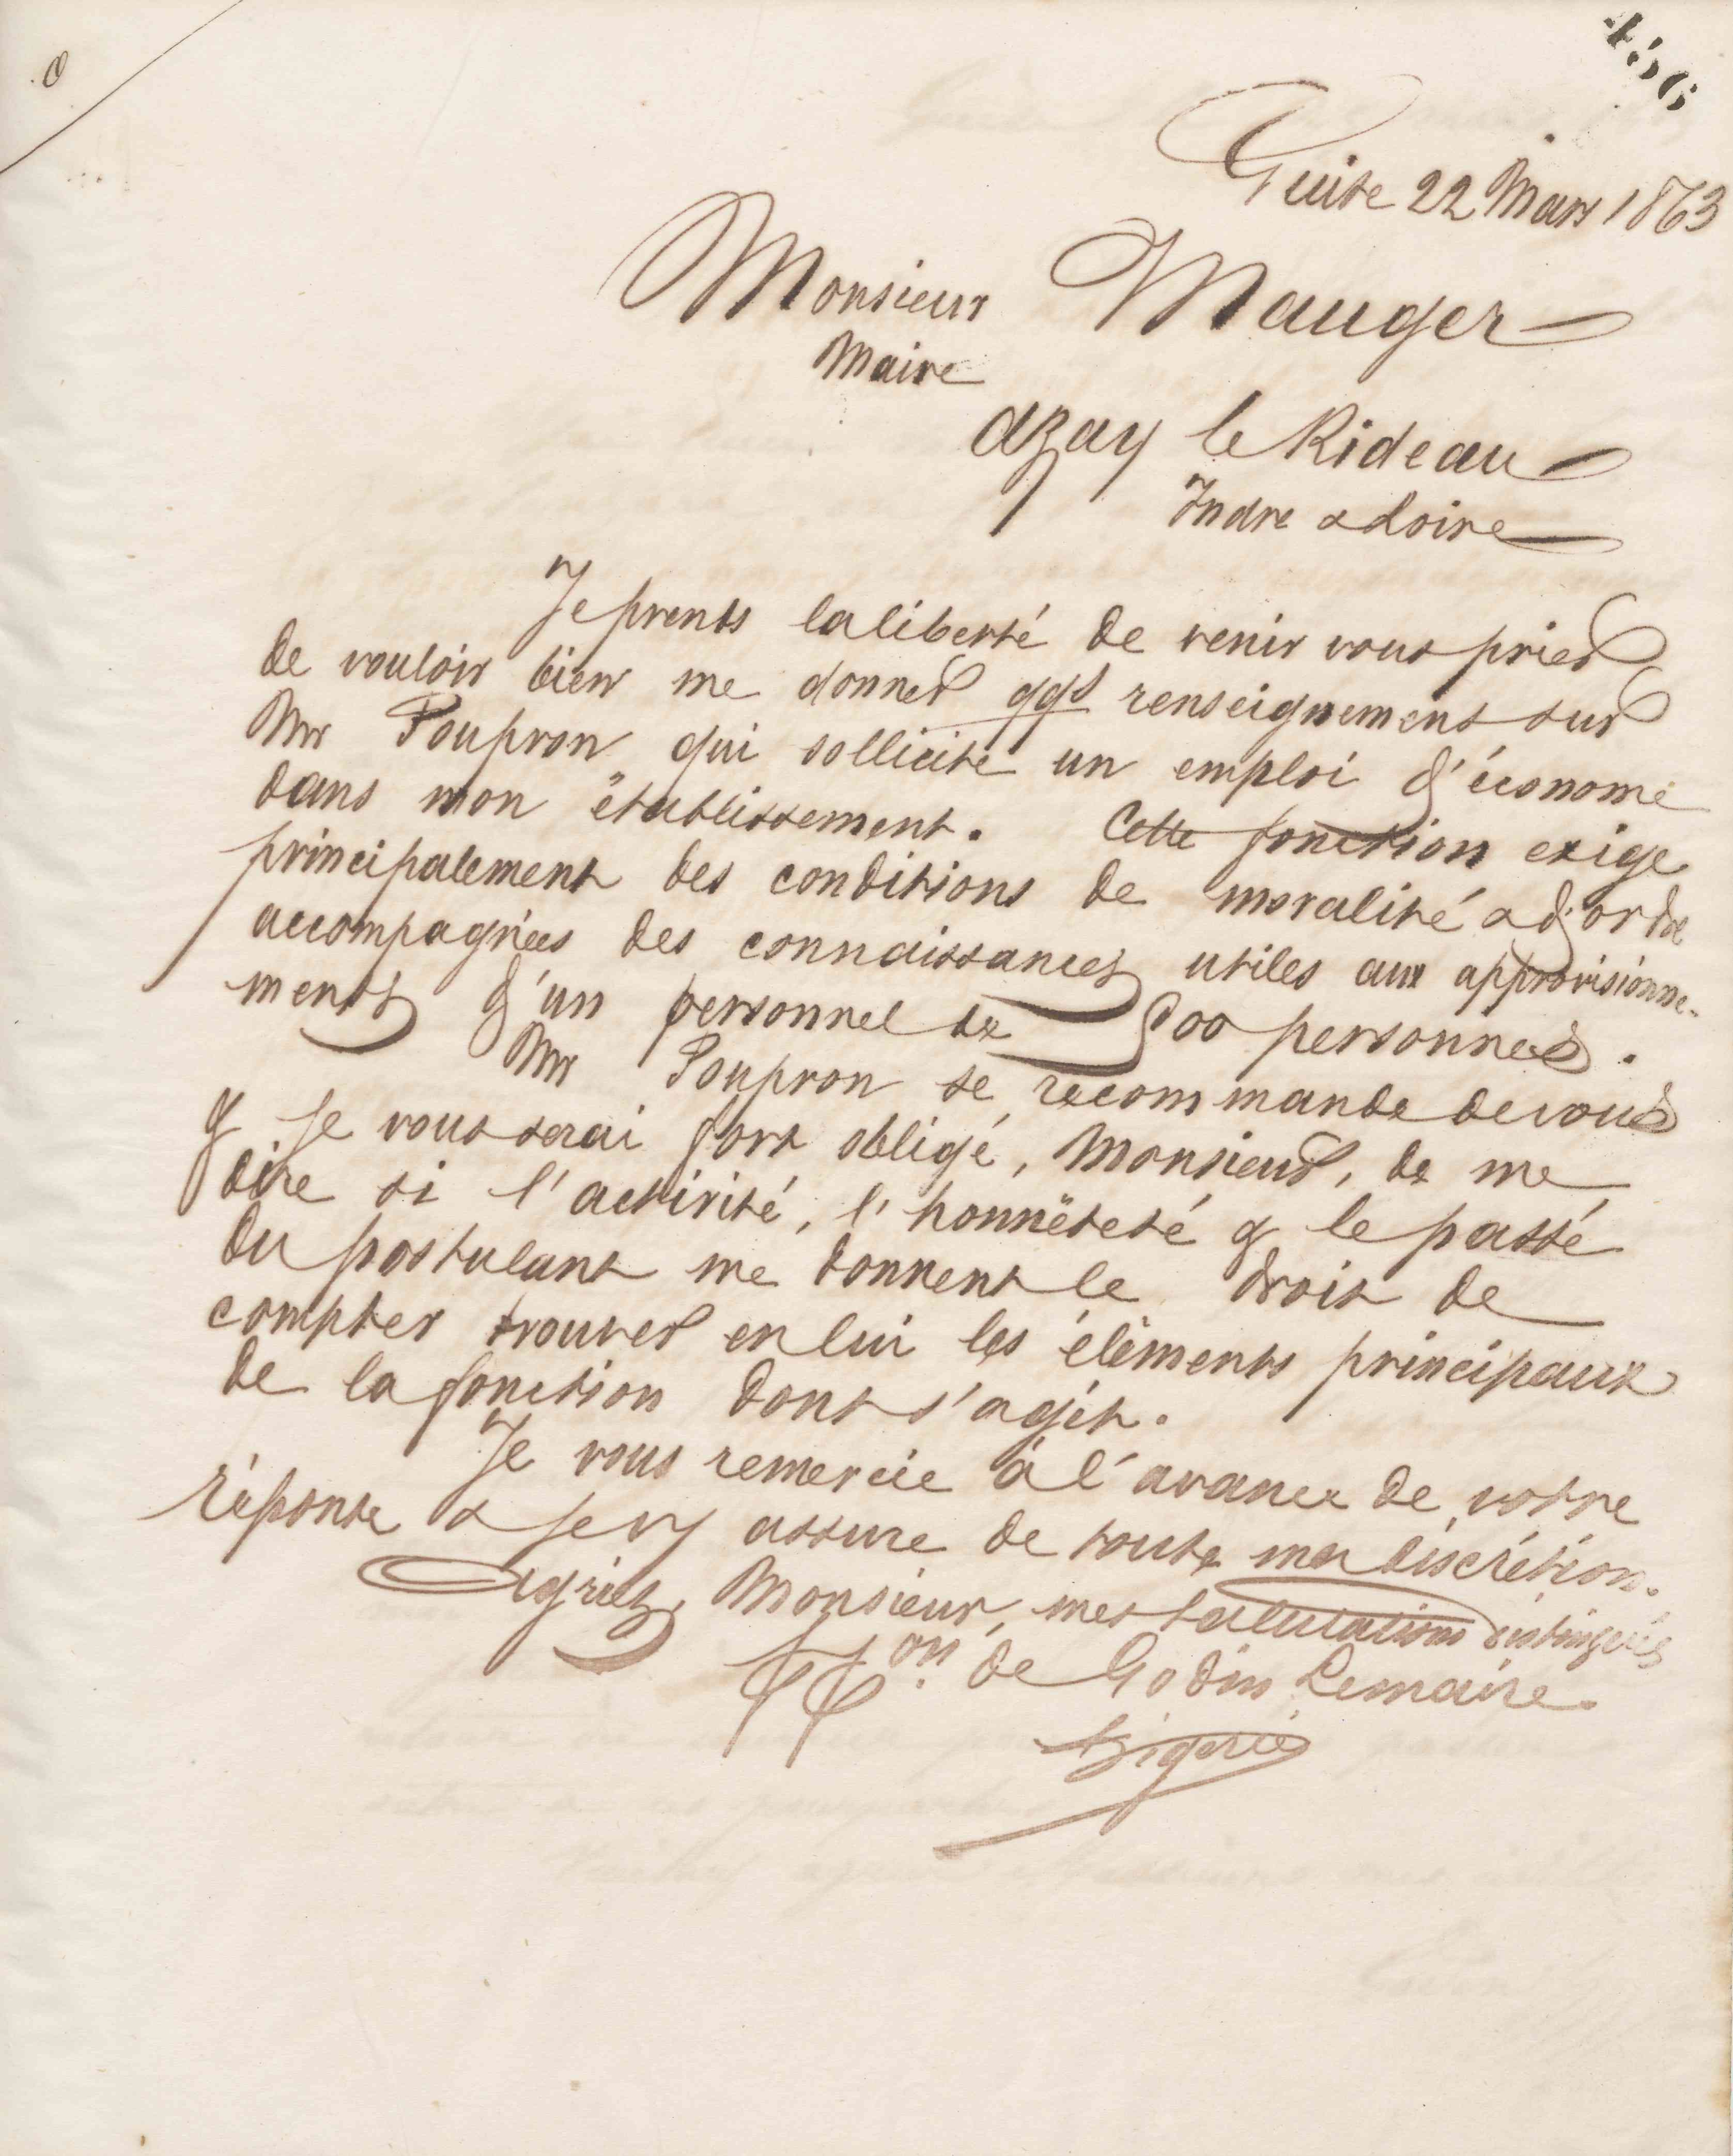 456
Guise 22 Mars 1863
Monsieur Mauger
Maire
Azay le Rideau
Indre & Loire
Je prends la liberté de venir vous prier
de vouloir bien me donner qqs renseignements sur
Mr Poupron qui sollicite un emploi d'économe
dans mon établissement. Cette fonction exige
principalement des conditions de moralité & d'ordre
accompagnées des connaissances utiles aux approvisionne-
ments d'un personnel de 800 personnes.
Mr Poupron se recommande de vous
& je vous serai fort obligé, Monsieur, de me
dire si l'activité, l'honnêteté & le passé
du postulant me donnent le droit de
compter trouver en lui les éléments principaux
de la fonction dont s'agit.
Je vous remercie à l'avance de votre
réponse & je vs assure de toute ma discrétion.
Agréez, Monsieur, mes salutations distinguées
Pon. de Godin Lemaire